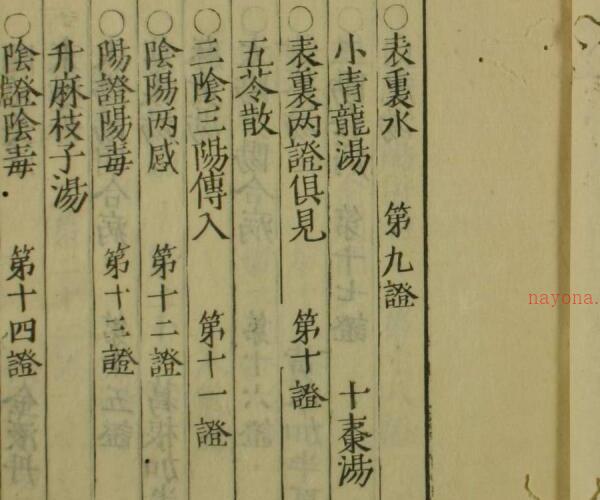 ○表裏水 第九證
小青龍湯 十棗湯
○表裏两證俱見 第十證
五苓散
○三陰三陽傳入 第十一證
○陰陽两感 第十二證
○陽證陽毒 第十三證
升麻枝子湯
○陰證陰毒 第十四證
nayona.